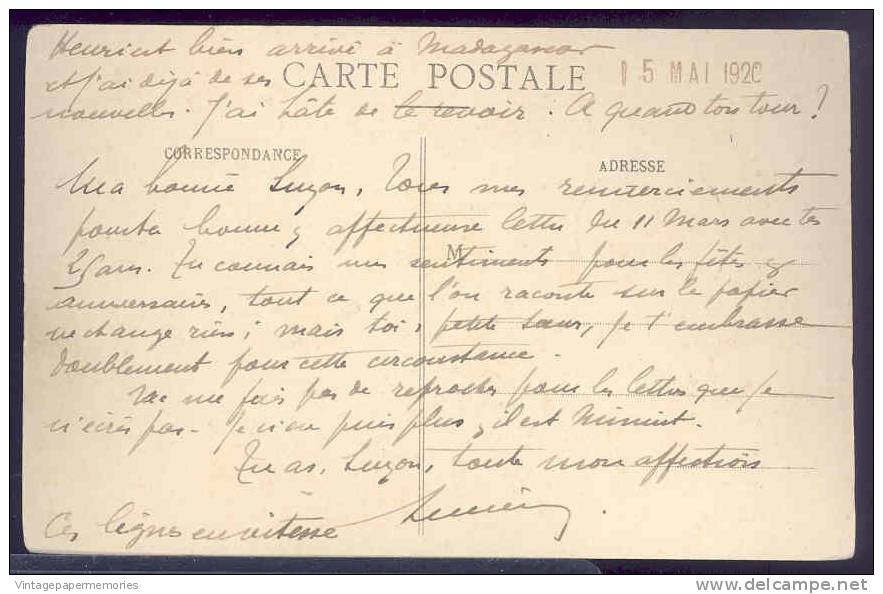 Henriet bien arrivé à Madagascar
et j'ai déjà de ses
CARTE POSTALE
15 MAI 1920
nouvelles. J'ai hâte de le revoir. A quand ton tour ?
CORRESPONDANCE
ADRESSE
Ma bonne Suzon, Tous mes remerciements
pour ta bonne & affectueuse lettre du 11 Mars avec tes
25 ans. Tu connais mes sentiments pour les fêtes &
M
anniversaires, tout ce que l'on raconte sur le papier
ne change rien ; mais toi, petite sœur, je t'embrasse
doublement pour cette circonstance.
Ne me fais pas de reproches pour les lettres que je
n'écris pas. Je n'en puis plus, il est Minuit.
Tu as, Suzon, toute mon affection
Ces lignes en vitesse
Vintagepapermemories
delcampe.net